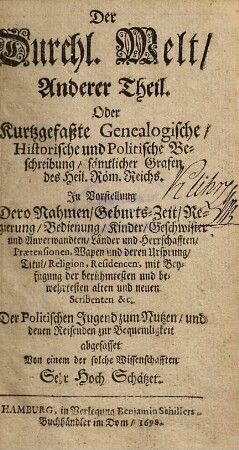 Der
Durchl. Welt/
Anderer Theil.
Oder
Kurtzgefaßte Genealogische/
Historische und Politische Be-
schreibung/ sämtlicher Grafen
des Heil. Röm. Reichs.
In Vorstellung
Dero Nahmen/ Geburts-Zeit/ Re-
gierung/ Bedienung/ Kinder/ Geschwister
und Anverwandten/ Länder und Herrschafften/
Prætensionen, Wapen und deren Ursprung/
Titul/ Religion, Residencen, mit Bey-
fügung der berühmtesten und be-
wehrtesten alten und neuen
Scribenten &c.
Der Politischen Jugend zum Nutzen/ und
denen Reisenden zur Bequemligkeit
abgefasset
Von einem der solche Wissenschafften
Sehr Hoch Schätzet.
HAMBURG, in Verlegung Benjamin Schillers
Buchhändler im Dom/ 1698.